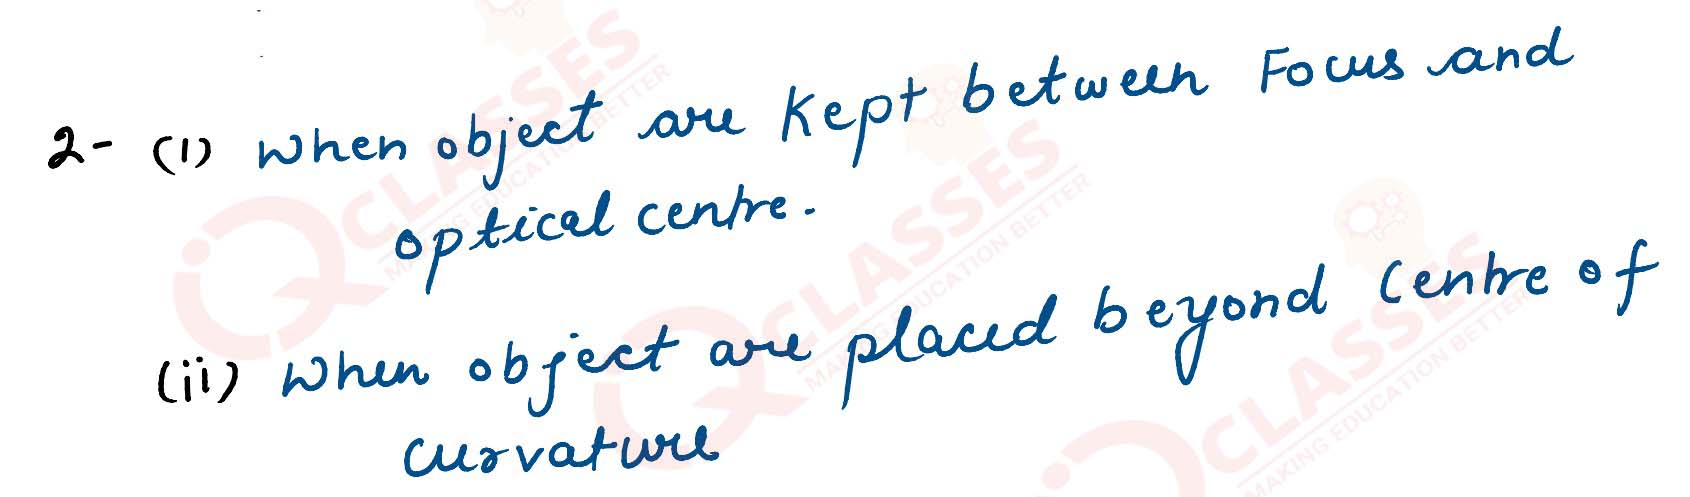 2- (i) When object are kept between Focus and
optical centre.
(ii) When object are placed beyond Centre of
curvature
CLASSES
MAKING EDUCATION BETTER
CLASSES
MAKING EDUCATION BETTER
CLASSES
MAKING EDUCATION BETTER